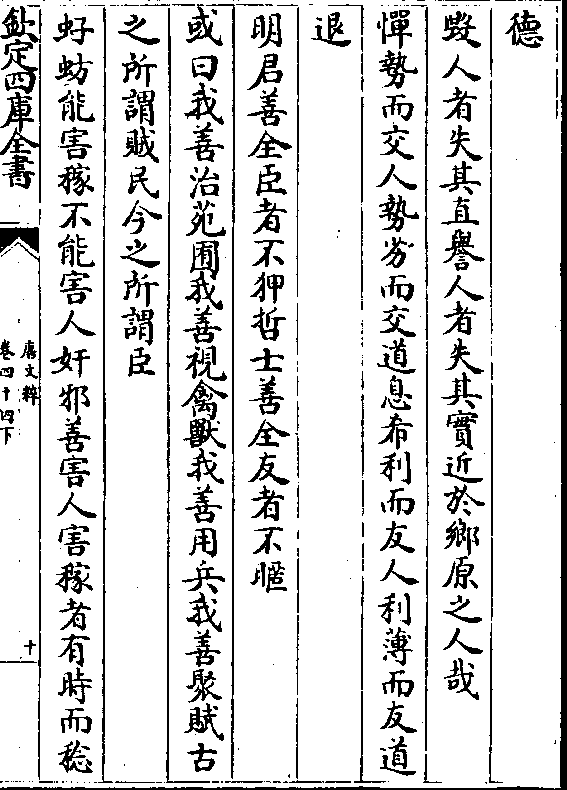 德
毀人者失其直譽人者失其實近於鄉原之人哉
憚勢而交人勢劣而交道息希利而友人利薄而友道
退
明君善全臣者不狎哲士善全友者不暱
或曰我善治苑囿我善視禽獸我善用兵我善聚賦古
之所謂賊民今之所謂臣
虸蚄能害稼不能害人奸邪善害人害稼者有時而稔
欽定四庫全書
唐文粹
卷四十四下
十